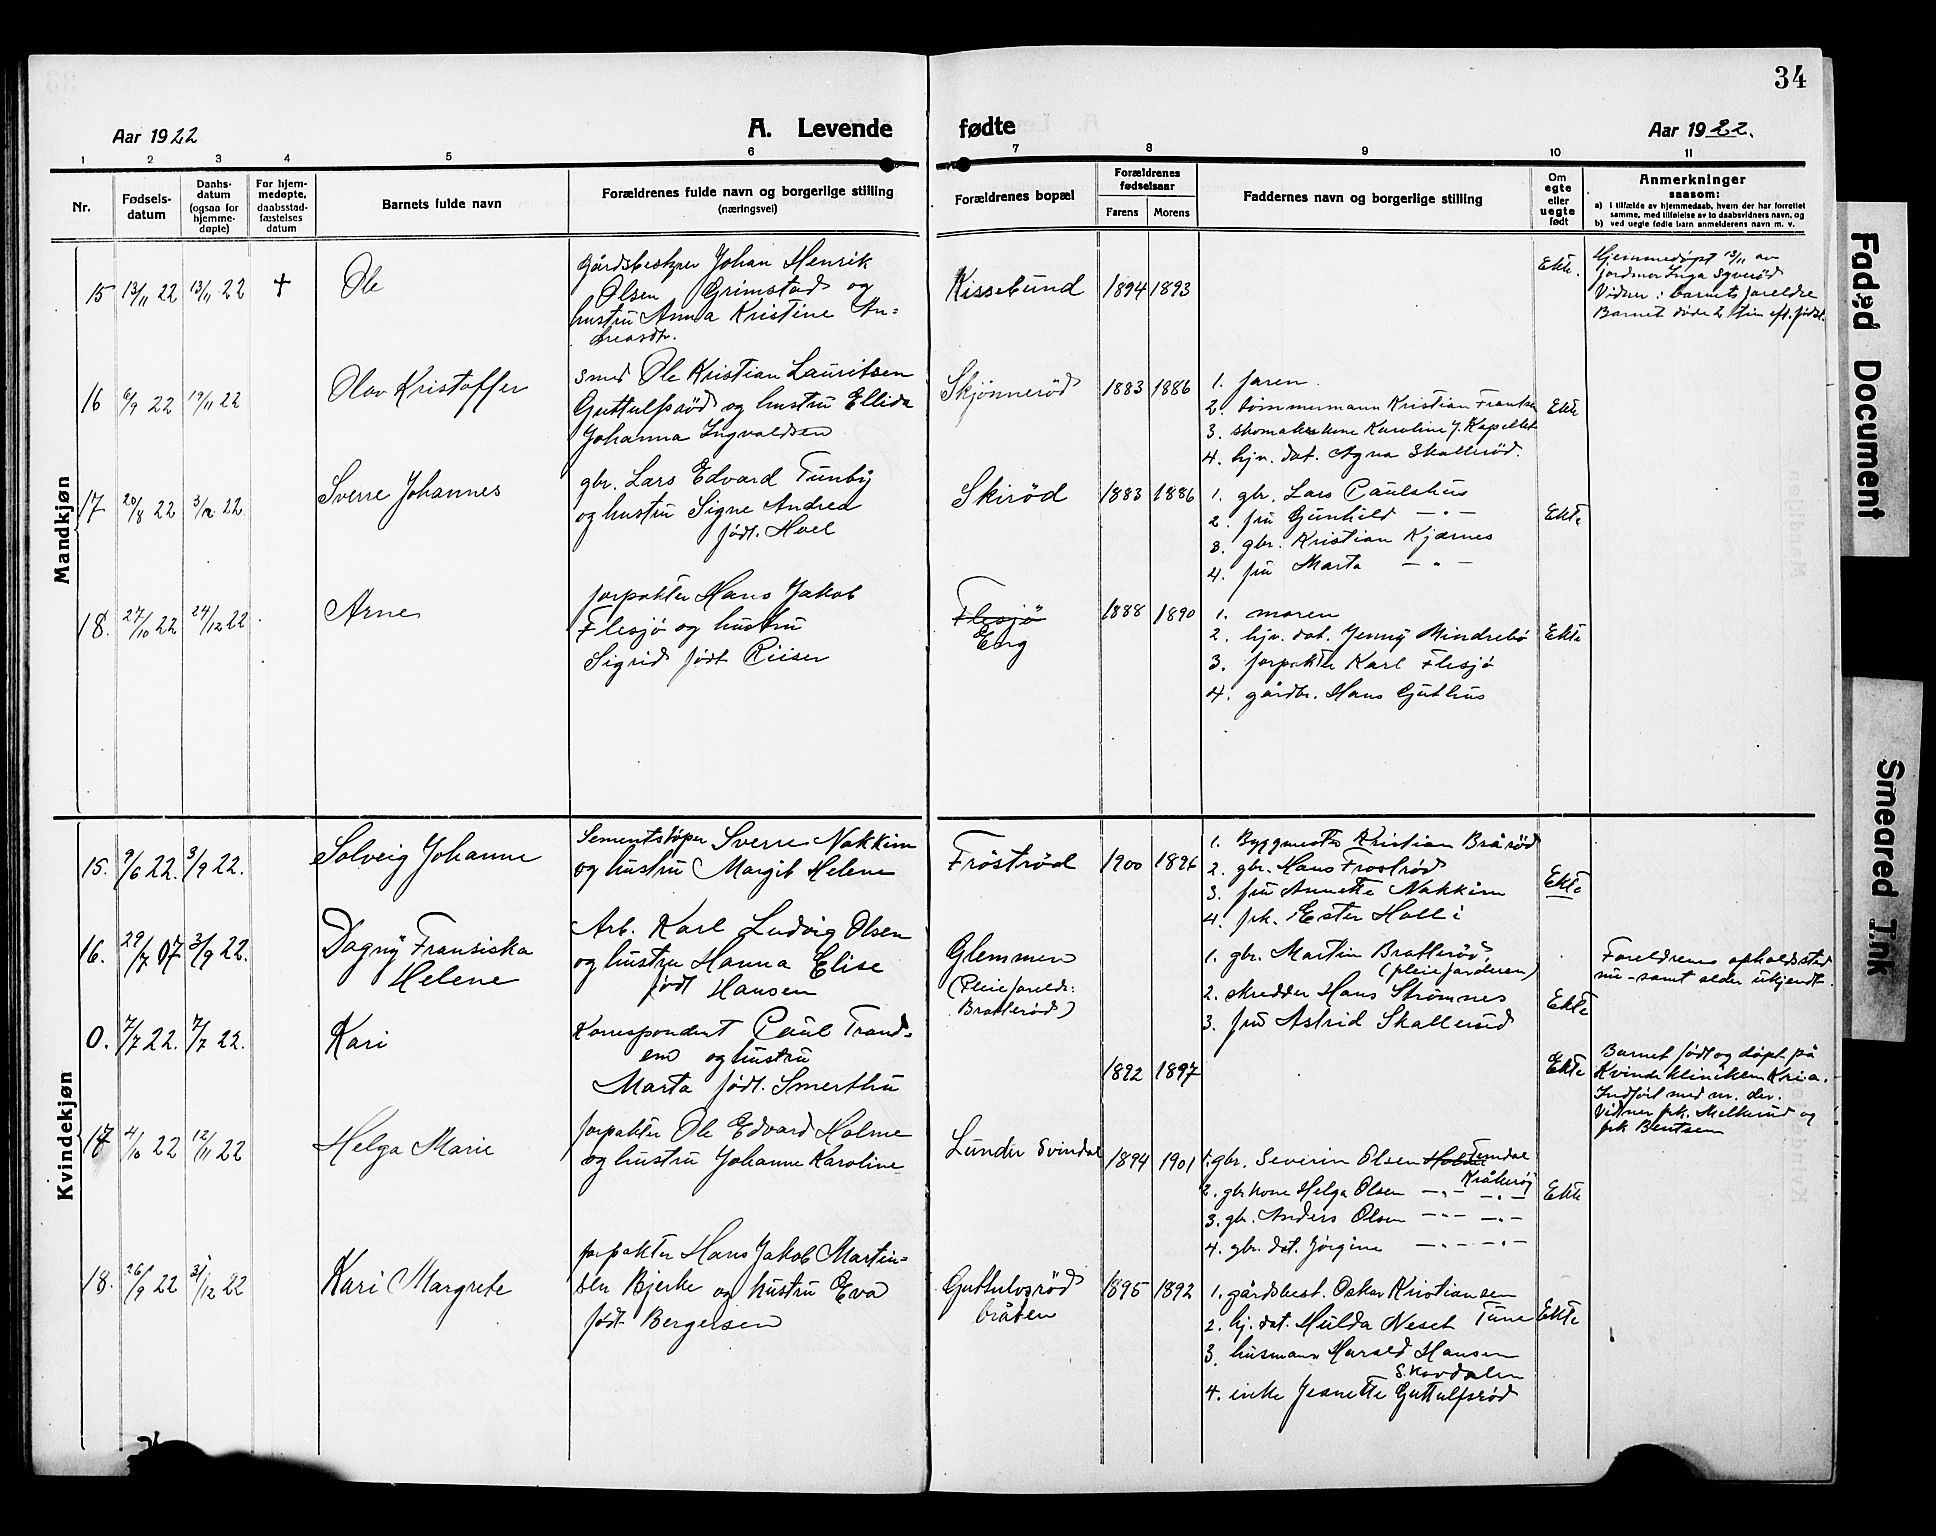 34
Aar 1922
A. Levende fødte
Aar 1922.
1 2 3 4 5 6 7 8 9 10 11
Nr.
Fødsels-
datum
Daabs-
datum
(ogsaa for
hjemme-
døpte)
For hjem-
medøpte,
daabsstad-
fæstelses
datum
Barnets fulde navn
Forældrenes fulde navn og borgerlige stilling
(næringsvei)
Forældrenes bopæl
Forældrenes
fødselsaar
Farens Morens
Faddernes navn og borgerlige stilling
Om
egte
eller
uegte
født
Anmerkninger
saasom:
a) i tilfælde av hjemmedaab, hvem der har forrettet
samme, med tilføielse av to daabsvidners navn, og
b) ved uegte fødte barn anmelderens navn m. v.
Mandkjøn
15 13/11 22 13/11 22 + Ole
Gårdsbestyrer Johan Henrik
Olsen Grimstad og
hustru Anna Kristine An=
dreasdtr.
Kissebund 1894 1893
Ekte.
Hjemmedøpt 13/11 av
jordmor Inga Syverød
Vidner: barnets foreldre
Barnet døde 2 tim eft. fødsl.
16 6/9 22 19/11 22 Olav Kristoffer
smed Ole Kristian Lauritsen
Guttulfsrød og hustru Ellida
Johanna Ingvaldsen
Skjønnerød 1883 1886
1. faren.
2. tømmermann Kristian Frantsen
3. skomakerkone Karoline J. Kapellet
4. hjv. dat. Agna Skallerød.
Ekte
17 20/8 22 3/12 22 Sverre Johannes
gbr. Lars Edvard Tunby
og hustru Signe Andrea
født. Hoel
Skirød 1883 1886
1. gbr. Lars Paulshus
2. fru Gunhild — " —
3. gbr. Kristian Kjærnes
4. fru Marta — " —
Ekte
18. 27/10 22 24/12 22 Arne
forpakter Hans Jakob
Flesjø og hustru
Sigrid født Riiser
Flesjø
Eng
1888 1890
1. moren
2. hjv. dat. Jenny Mindrebø
3. forpakter Karl Flesjø
4. gårdbr. Hans Guthus
Ekte
Kvindekjøn
15. 9/6 22. 3/9 22. Solveig Johanne
Sementstøper Sverre Nakkim
og hustru Margit Helene
Frøstrød 1900 1896
1. Byggmester Kristian Brårød
2. gbr. Hans Frostrød
3. fru Annette Nakkim
4. frk. Ester Holli
Ekte
16. 29/7 07 3/9 22. Dagny Fransiska
Helene
Arb. Karl Ludvig Olsen
og hustru Hanna Elise
født Hansen
Glemmen
(Pleieforeldr:
Bratterød)
1. gbr. Martin Bratterød
(pleiefarderen)
2. skredder Hans Strømnes
3. fru Astrid Skallerud
Ekte
Foreldrenes opholdssted
nu - samt alder ukjendt.
0. 7/7 22. 7/7 22. Kari
Korrespondent Paul Trand=
em og hustru
Marta født. Smerthu
1892 1897
Ekte
Barnet født og døpt på
Kvindekliniken Kria.
Indført med nr. der.
Vidner frk. Melkerud og
frk Bentsen
17 4/10 22 12/11 22 Helga Marie
forpakter Ole Edvard Holme
og hustru Johanne Karoline
Lunder Svindal 1894 1901
1. gbr. Severin Olsen Femdal
Kråkerøy
2. gbr kone Helga Olsen — " — — " —
3. gbr. Anders Olsen — " — — " —
4. gbr. dat. Jørgine — " — — " —
Ekte
18. 26/9 22 31/12 22 Kari Margrete
forpakter Hans Jakob Martin=
sen Bjerke og hustru Eva
født Bergersen
Guttulvsrød
bråten
1895 1892
1. gårdsbest. Oskar Kristiansen
2. hj. dat. Hulda Neset Tune
3. husmann Harald Hansen
Skovdalen
4. enke Jeanette Guttulfsrød
Ekte
Faded Document
Smeared Ink